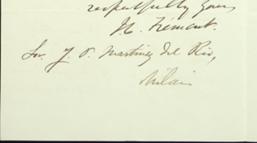 respectfully yours
H. Fremont.
Snr J. P. Martinez del Rio,
Milan